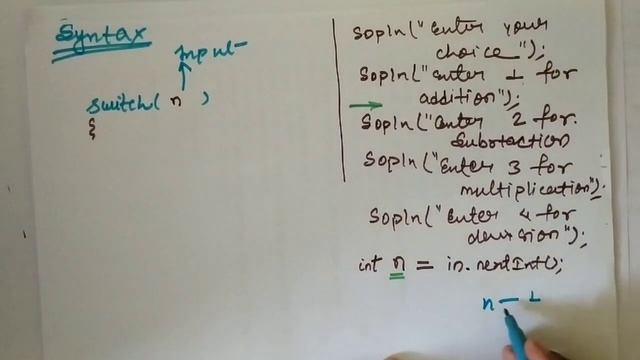 Syntax
input
switch( n )
{
Sopln("Enter your
choice");
Sopln("enter 1 for
addition");
Sopln("enter 2 for
subtraction
Sopln("Enter 3 for
multiplication");
Sopln("Enter 4 for
division");
int n = in.nextInt();
n — 1